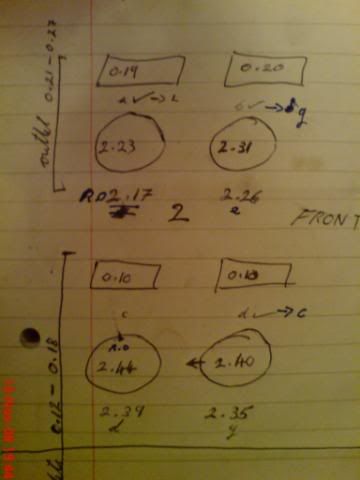 outlet 0.21-0.27
0.19 0.20
a ✓→ b ✓→ g
2.23 2.31
2.17 2.26
2 e
FRONT
0.12 - 0.18
0.10 0.10
c d ✓→ c
2.44 ← 2.40
2.39 2.35
d g